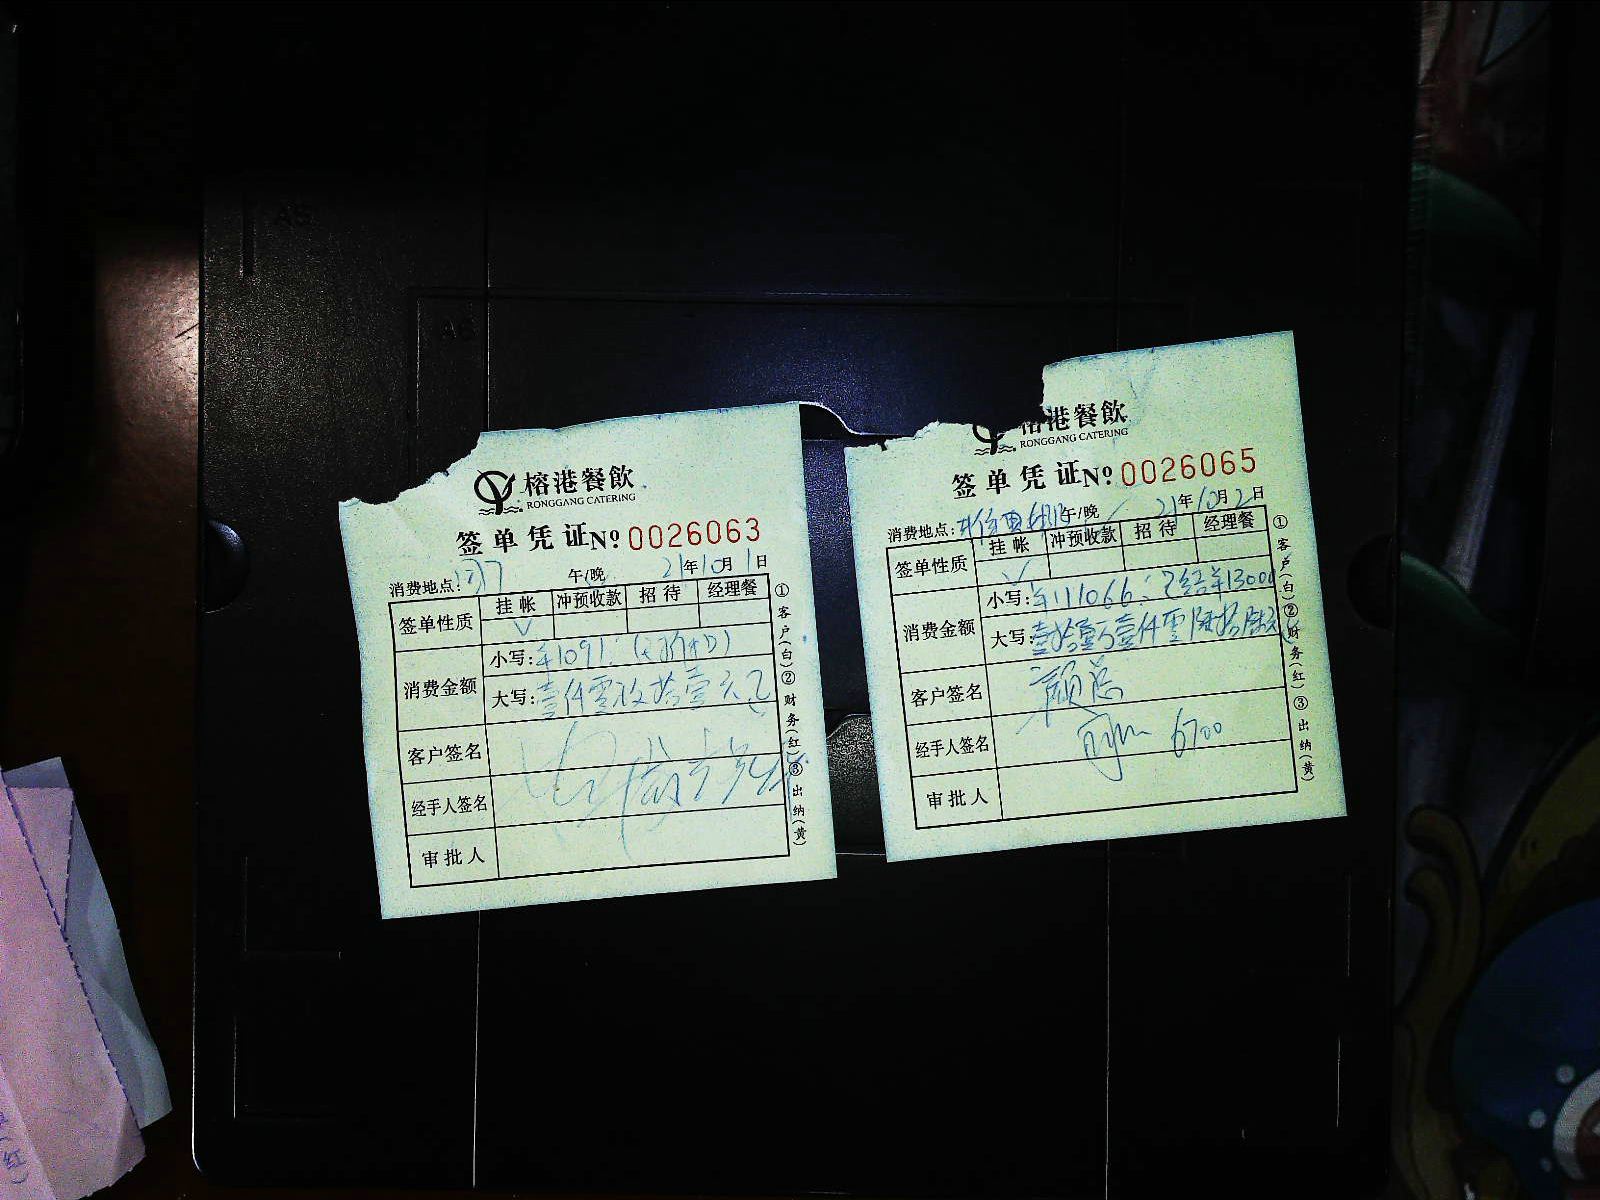 榕港餐飲
RONGGANG CATERING
签单凭证№ 0026063
消费地点: 午/晚 21年10月1日
签单性质 挂帐 冲预收款 招待 经理餐
√
消费金额 小写:¥1091.
大写:壹仟零玖拾壹元
客户签名
经手人签名
审批人
①客户(白)②财务(红)③出纳(黄)
榕港餐飲
RONGGANG CATERING
签单凭证№ 0026065
消费地点: 午/晚 21年10月2日
签单性质 挂帐 冲预收款 招待 经理餐
√
消费金额 小写:¥111066. 已结¥13000
大写:壹拾壹万壹仟零陆拾陆元
客户签名 颜总
经手人签名 6700
审批人
①客户(白)②财务(红)③出纳(黄)
(红)